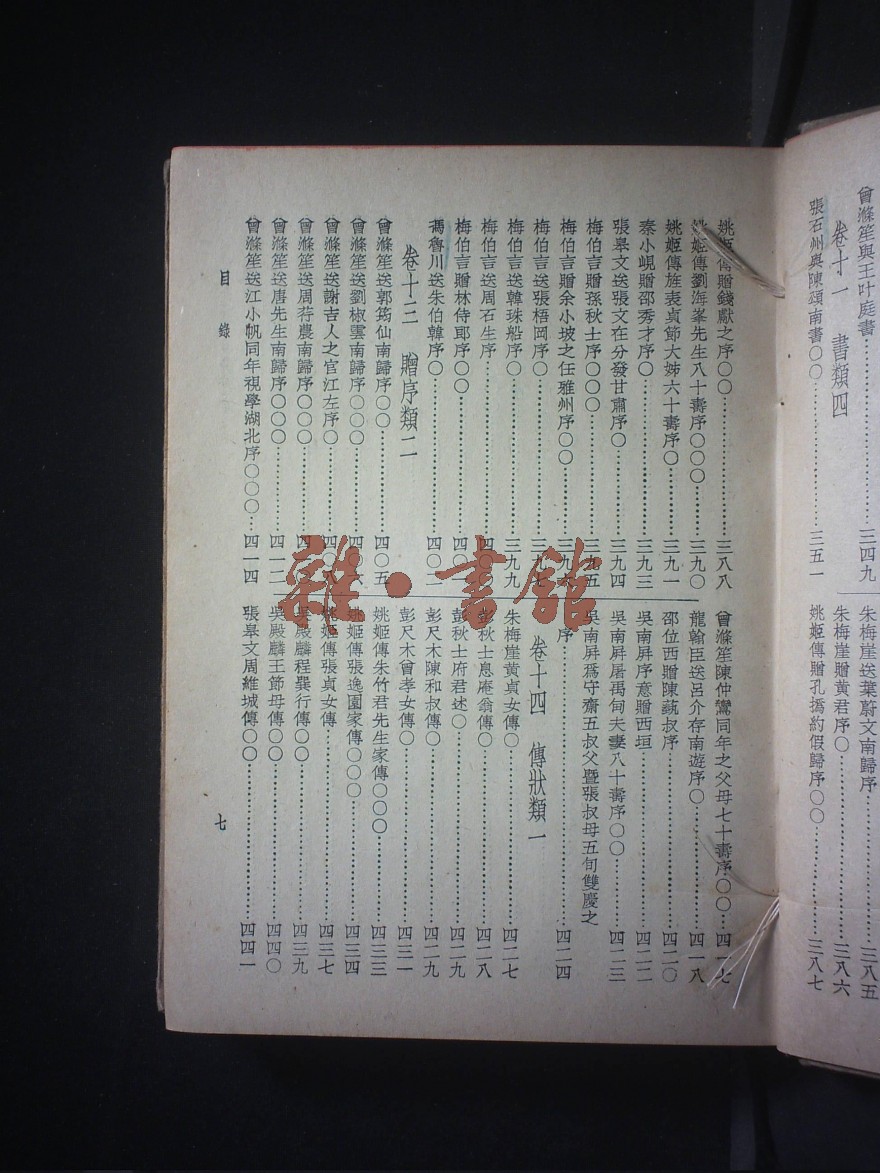 曾滌笙與王叶庭書……三四九
卷十一　書類四
張石州與陳頌南書〇〇……三五一
朱梅崖送葉蔚文南歸序……三八五
朱梅崖贈黃君序〇……三八六
姚姬傳贈孔撝約假歸序〇〇……三八七
姚姬傳贈錢獻之序〇〇……三八八
姚姬傳劉海峯先生八十壽序〇〇〇……三九〇
姚姬傳旌表貞節大姊六十壽序〇……三九一
秦小峴贈邵秀才序〇……三九三
張皋文送張文在分發甘肅序〇……三九四
梅伯言贈孫秋士序〇〇〇……三九五
梅伯言贈余小坡之任雅州序〇〇……三九六
梅伯言送張梧岡序〇……三九七
梅伯言送韓珠船序〇……三九九
梅伯言送周石生序……四〇〇
梅伯言贈林侍郎序〇〇……四〇
馮魯川送朱伯韓序〇……四〇二
卷十三　贈序類二
曾滌笙送郭筠仙南歸序〇〇……四〇五
曾滌笙送劉椒雲南歸序〇〇〇……四〇六
曾滌笙送謝吉人之官江左序〇……四〇八
曾滌笙送周荇農南歸序〇〇〇……四一
曾滌笙送唐先生南歸序〇〇〇……四一二
曾滌笙送江小帆同年視學湖北序〇〇〇……四一四
曾滌笙陳仲鸞同年之父母七十壽序〇〇……四一七
龍翰臣送呂介存南遊序〇……四一八
邵位西贈陳蓺叔序……四二〇
吳南屏序意贈西垣……四二二
吳南屏屠禹甸夫妻八十壽序〇〇……四二三
吳南屏爲守齋五叔父暨張叔母五旬雙慶之
序……四二四
卷十四　傳狀類一
朱梅崖黃貞女傳〇……四二七
彭秋士息庵翁傳〇……四二八
彭秋士府君述〇……四二九
彭尺木陳和叔傳〇……四二九
彭尺木曾孝女傳〇……四三一
姚姬傳朱竹君先生家傳〇〇〇……四三三
姚姬傳張逸園家傳〇〇〇……四三四
姚姬傳張貞女傳……四三七
吳殿麟程巽行傳〇〇……四三九
吳殿麟王節母傳〇〇……四四〇
張皋文周維城傳〇〇……四四一
目錄
七
雜·書館